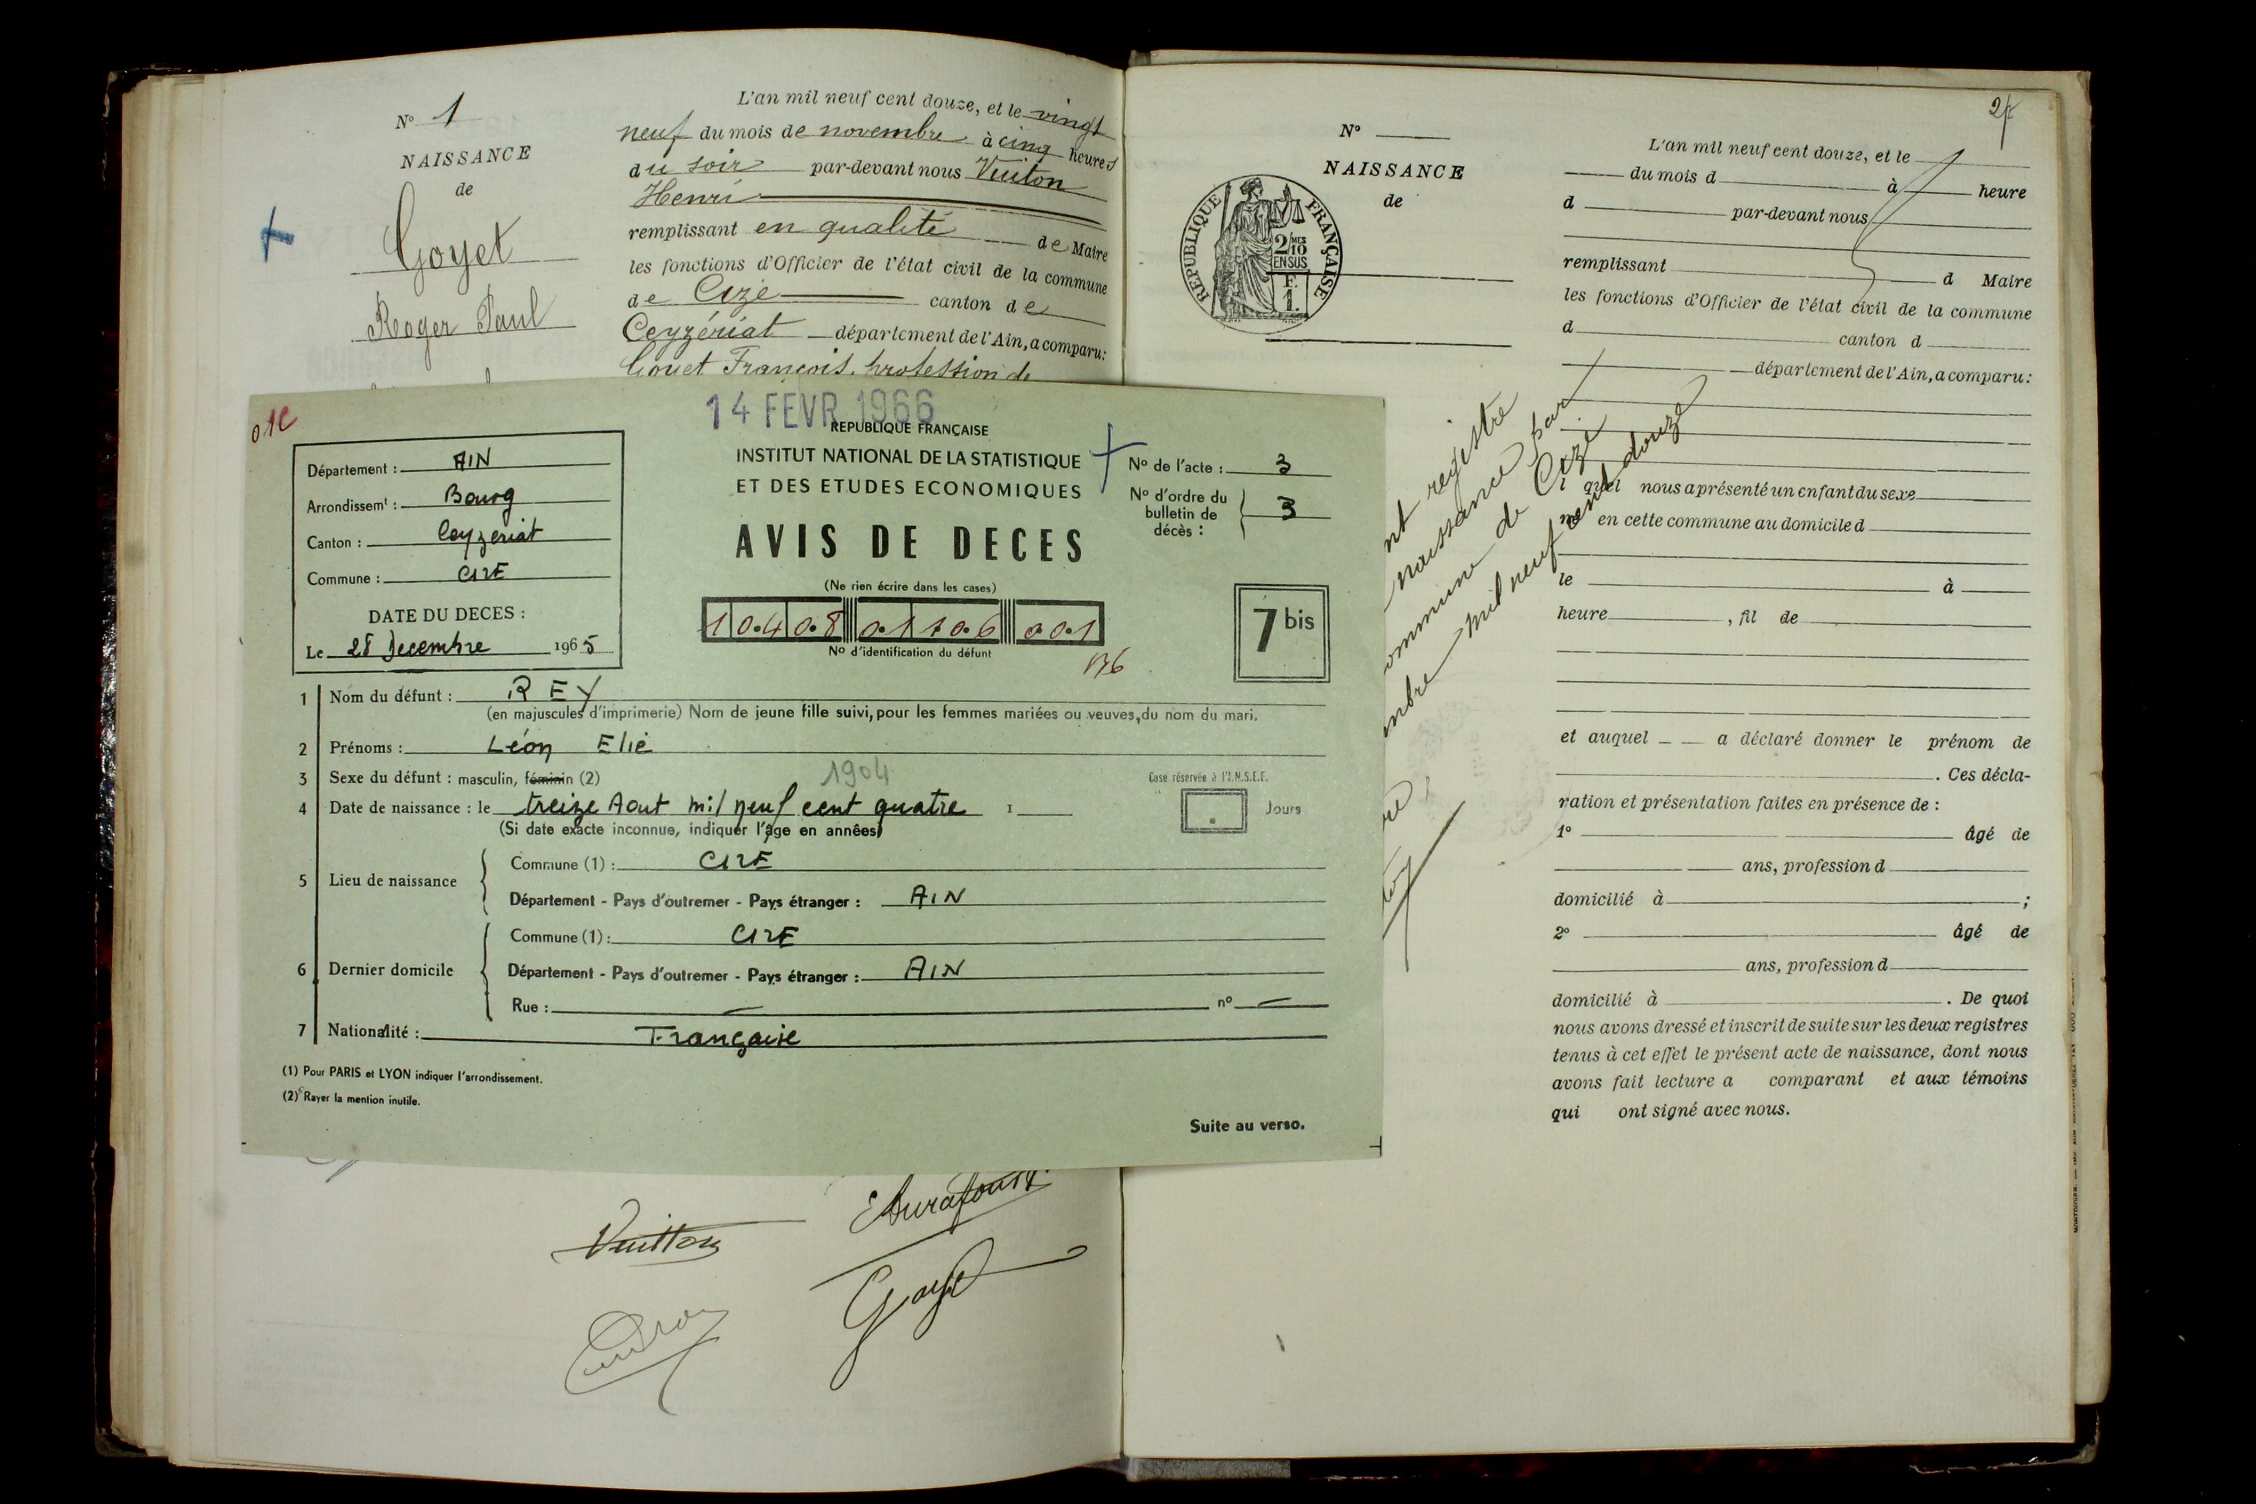 N° 1
NAISSANCE
de
Goyet
Roger Paul
L'an mil neuf cent douze, et le vingt
neuf du mois de novembre à cinq heures
du soir par-devant nous Vuiton
Henri
remplissant en qualité de Maire
les fonctions d'Officier de l'état civil de la commune
de Cize canton de
Ceyzériat département de l'Ain, a comparu:
Goyet François, profession de
14 FEVR 1966
Département : AIN
Arrondissemt : Bourg
Canton : Ceyzeriat
Commune : CIZE
DATE DU DECES :
Le 28 Decembre 1965
REPUBLIQUE FRANÇAISE
INSTITUT NATIONAL DE LA STATISTIQUE
ET DES ETUDES ECONOMIQUES
AVIS DE DECES
(Ne rien écrire dans les cases)
1 0.4 0.8 0.1 1 0.6 0.0.1
N° d'identification du défunt
136
N° de l'acte : 3
N° d'ordre du
bulletin de
décès : 3
7 bis
1 Nom du défunt : REY
(en majuscules d'imprimerie) Nom de jeune fille suivi, pour les femmes mariées ou veuves, du nom du mari.
2 Prénoms : Léon Elie
3 Sexe du défunt : masculin, féminin (2)
1904
4 Date de naissance : le treize Aout mil neuf cent quatre 1
(Si date exacte inconnue, indiquer l'âge en années)
Case réservée à l'I.N.S.E.E.
Jours
5 Lieu de naissance
Commune (1) : CIZE
Département - Pays d'outremer - Pays étranger : AIN
6 Dernier domicile
Commune (1) : CIZE
Département - Pays d'outremer - Pays étranger : AIN
Rue : — n° —
7 Nationalité : Française
(1) Pour PARIS et LYON indiquer l'arrondissement.
(2) Rayer la mention inutile.
Suite au verso.
Vuiton
Goyet
27
N°
NAISSANCE
de
REPUBLIQUE FRANÇAISE
2/10 MES
EN SUS
F.
1.
nt registre
naissance par
ommune de Cize
mbre mil neuf cent douze
L'an mil neuf cent douze, et le
du mois d à heure
d par-devant nous
remplissant d Maire
les fonctions d'Officier de l'état civil de la commune
d canton d
département de l'Ain, a comparu:
l quel nous a présenté un enfant du sexe
né en cette commune au domicile d
le à
heure , fil de
et auquel a déclaré donner le prénom de
. Ces décla-
ration et présentation faites en présence de :
1° âgé de
ans, profession d
domicilié à ;
2° âgé de
ans, profession d
domicilié à . De quoi
nous avons dressé et inscrit de suite sur les deux registres
tenus à cet effet le présent acte de naissance, dont nous
avons fait lecture a comparant et aux témoins
qui ont signé avec nous.